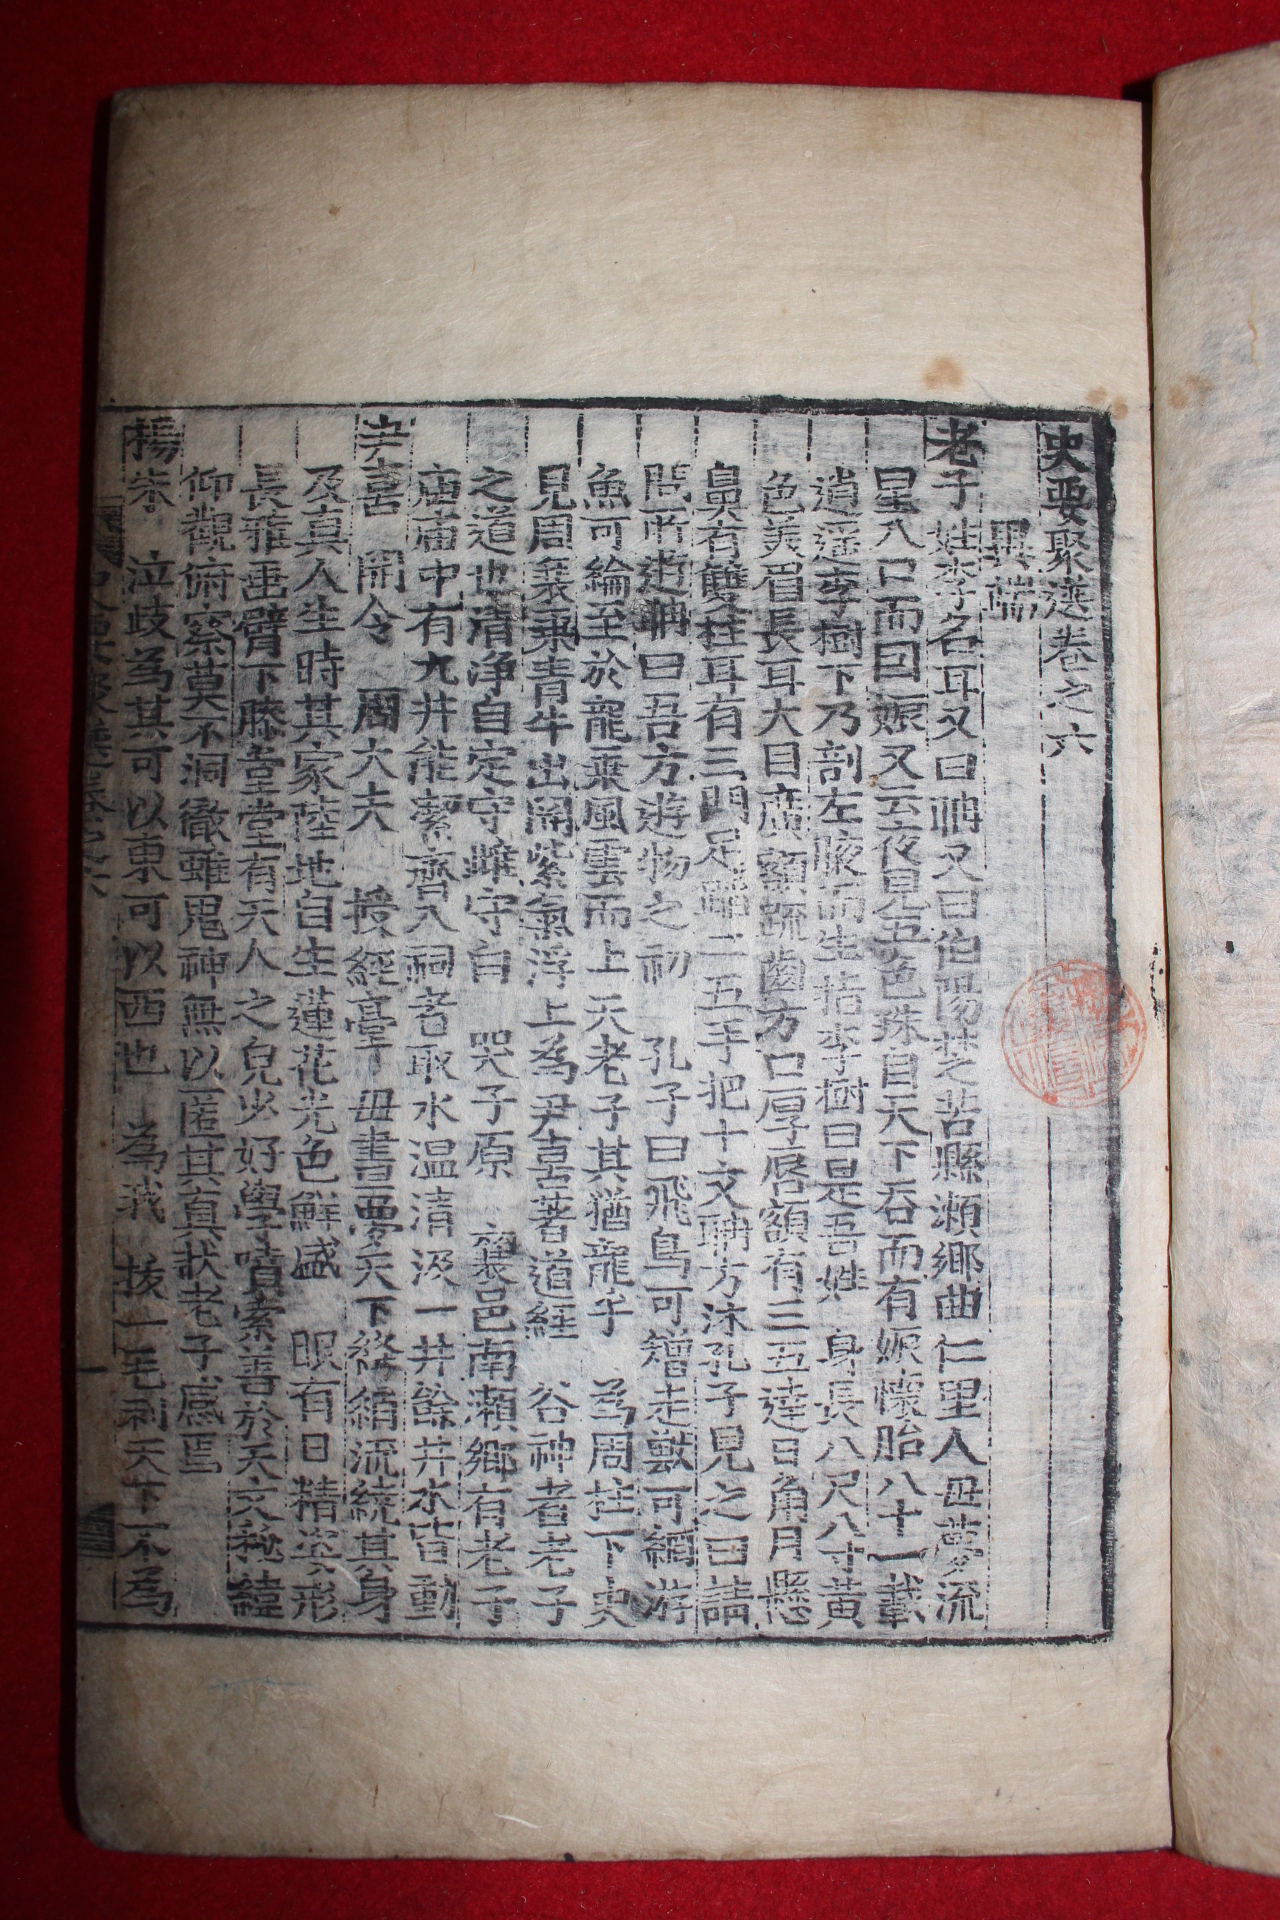 史要聚選卷之六
異端
老子 姓李名耳又曰聃又曰伯陽楚苦縣瀨鄉曲仁里人 毋夢流
星入口而因娠又云夜見五色珠自天下吞而有娠懷胎八十一載
逍遥李樹下乃剖左腋而生指李樹曰是吾姓 身長八尺八寸黃
色美眉長耳大目廣額疏齒方口厚唇額有三五達日角月懸
鼻有雙柱耳有三門足蹈二五手把十文聃方沐孔子見之曰請
問所遊聃曰吾方遊物之初 孔子曰飛鳥可矰走獸可綱游
魚可綸至於龍乘風雲而上天老子其猶龍乎 爲周柱下史
見周衰乘青牛出關紫氣浮上爲尹喜著道經 谷神者老子
之道也清净自定守雌守白 哭子原 襄邑南瀨鄉有老子
庙庙中有九井能㓗齊入祠者取水温清汲一井餘井水皆動
尹喜 開令 周大夫 授經臺 毋晝夢天下絳綃流繞其身
及真人生時其家陸地自生蓮花光色鮮盛 眼有日精姿形
長雅垂臂下膝堂堂有天人之皃少好學墳索善於天文祕緯
仰觀俯察莫不洞徹雖鬼神無以匿其真狀老子感焉
楊朱 泣歧為其可以東可以西也 為我 拔一毛利天下不為